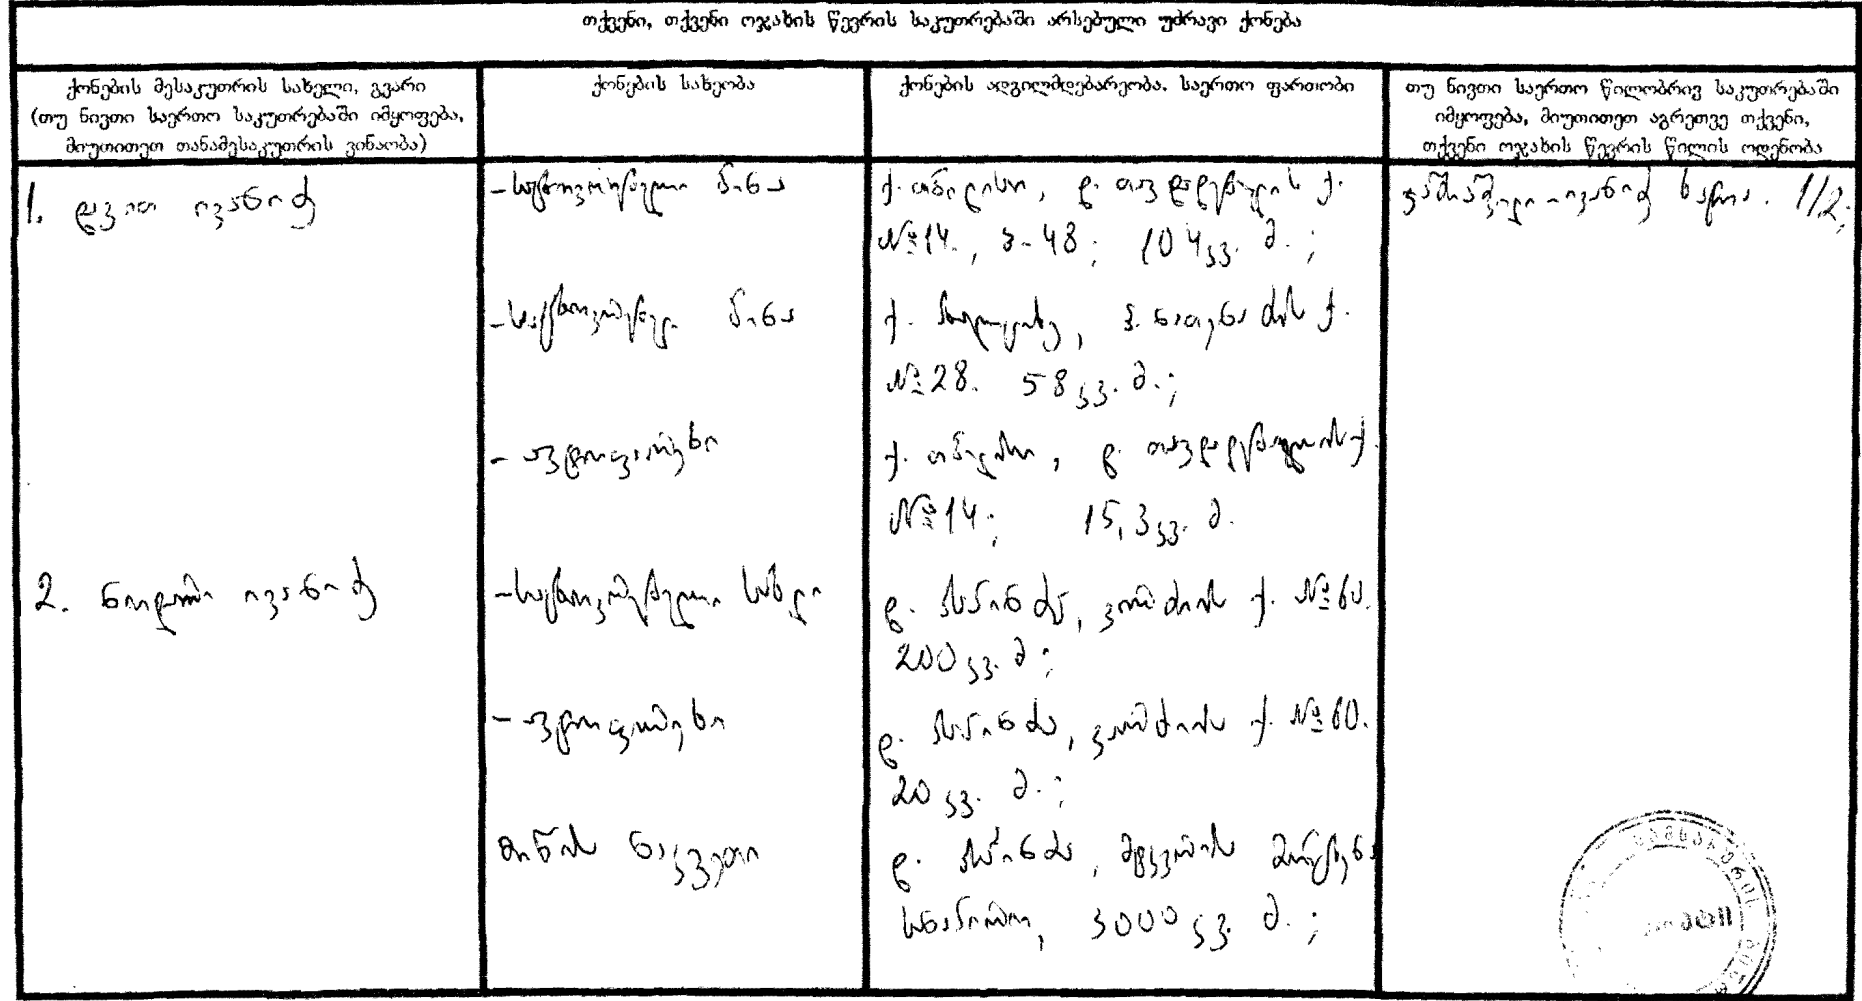 თქვენი, თქვენი ოჯახის წევრის საკუთრებაში არსებული უძრავი ქონება
ქონების მესაკუთრის სახელი, გვარი
(თუ ნივთი საერთო საკუთრებაში იმყოფება,
მიუთითეთ თანამესაკუთრის ვინაობა)
ქონების სახეობა
ქონების ადგილმდებარეობა. საერთო ფართობი
თუ ნივთი საერთო წილობრივ საკუთრებაში
იმყოფება, მიუთითეთ აგრეთვე თქვენი,
თქვენი ოჯახის წევრის წილის ოდენობა
1. დავით ივანიძე
-საცხოვრებელი ბინა
ქ. თბილისი, დ. თავდადებულის ქ.
№14., ბ-48; 104 კვ. მ.;
ივანიძე 1/2;
-საცხოვრებელი ბინა
ქ. ახალციხე, ნათენაძის ქ.
№28. 58 კვ. მ.;
-ავტოფარეხი
ქ. თბილისი, დ. თავდადებულის ქ.
№14; 15,3 კვ. მ.
2. ნოდარი ივანიძე
-საცხოვრებელი სახლი
დ. ასპინძა, ქ. №60.
200 კვ. მ;
-ავტოფარეხი
დ. ასპინძა, ქ. №60.
20 კვ. მ.;
მიწის ნაკვეთი
დ. ასპინძა, მტკვრის მარჯვენა
სანაპირო, 3000 კვ. მ.;